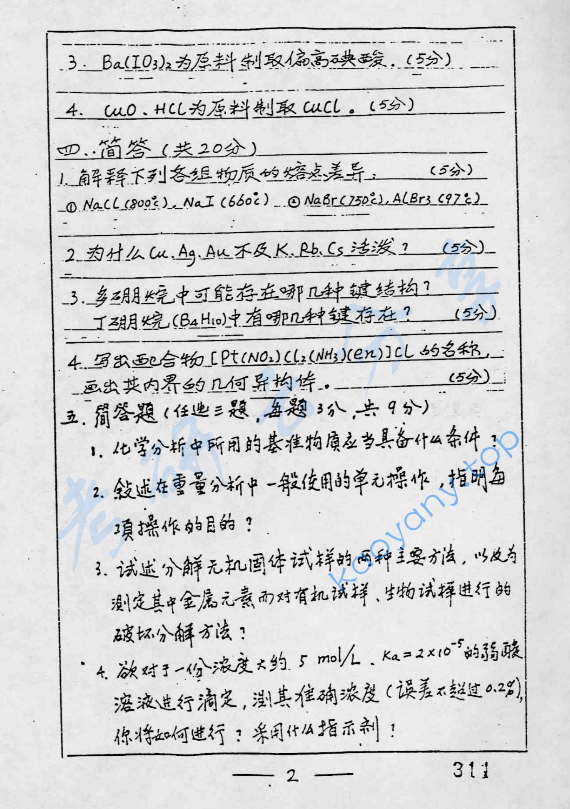 3. Ba(IO3)2为原料制取偏高碘酸. (5分)
4. CuO、HCl为原料制取CuCl。(5分)
四、简答(共20分)
1. 解释下列各组物质的熔点差异. (5分)
① NaCl(800℃)、NaI(660℃) ② NaBr(750℃)、AlBr3(97℃)
2. 为什么Cu、Ag、Au不及K、Rb、Cs活泼? (5分)
3. 多硼烷中可能存在哪几种键结构?
丁硼烷(B4H10)中有哪几种键存在? (5分)
4. 写出配合物[Pt(NO2)Cl2(NH3)(en)]Cl的名称,
画出其内界的几何异构体. (5分)
五. 简答题(任选三题, 每题3分, 共9分)
1. 化学分析中所用的基准物质应当具备什么条件?
2. 叙述在重量分析中一般使用的单元操作, 指明每
项操作的目的?
3. 试述分解无机固体试样的两种主要方法, 以及为
测定其中金属元素而对有机试样、生物试样进行的
破坏分解方法?
4. 欲对于一份浓度大约 5 mol/L、Ka=2×10-5的弱酸
溶液进行滴定, 测其准确浓度(误差不超过0.2%),
你将如何进行? 采用什么指示剂?
— 2 —
311
kaoyany.top